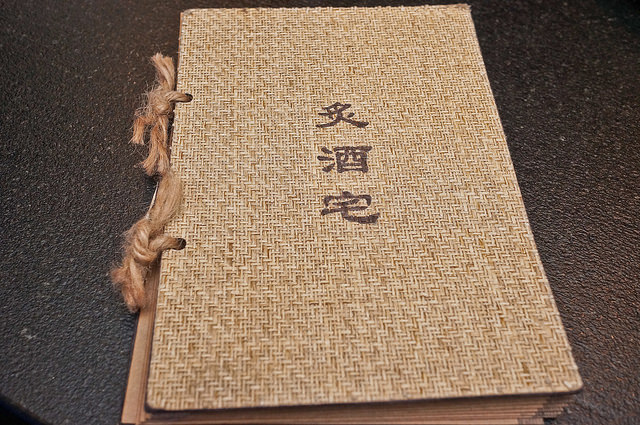 炙酒宅